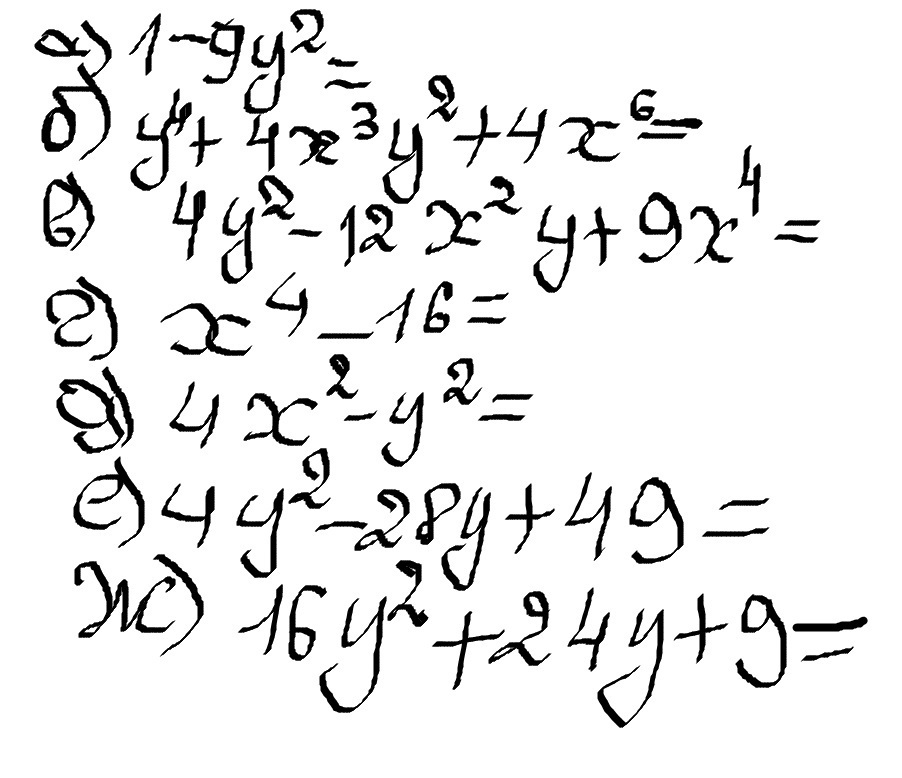 а) 1-9y²=
б) y⁴+4x³y²+4x⁶=
в) 4y²-12x²y+9x⁴=
г) x⁴-16=
д) 4x²-y²=
е) 4y²-28y+49=
ж) 16y²+24y+9=